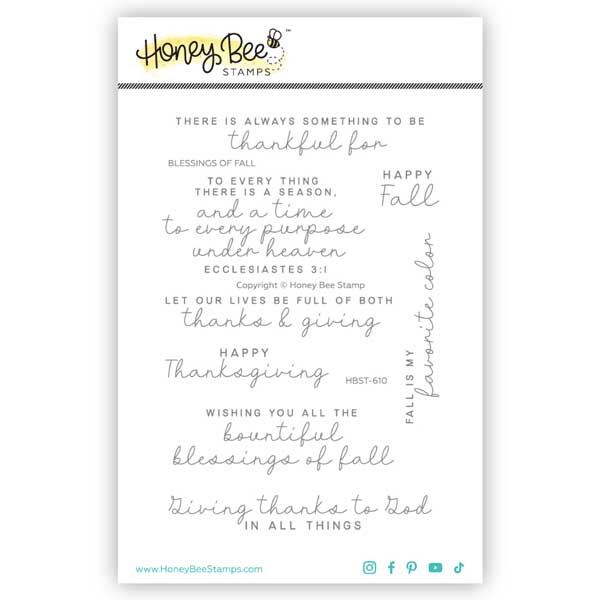 Honey Bee™
STAMPS
THERE IS ALWAYS SOMETHING TO BE
thankful for
BLESSINGS OF FALL
HAPPY
Fall
TO EVERY THING
THERE IS A SEASON,
and a time
to every purpose
under heaven
ECCLESIASTES 3:1
Copyright © Honey Bee Stamp
LET OUR LIVES BE FULL OF BOTH
thanks & giving
FALL IS MY
favorite color
HAPPY
Thanksgiving
HBST-610
WISHING YOU ALL THE
bountiful
blessings of fall
Giving thanks to God
IN ALL THINGS
www.HoneyBeeStamps.com